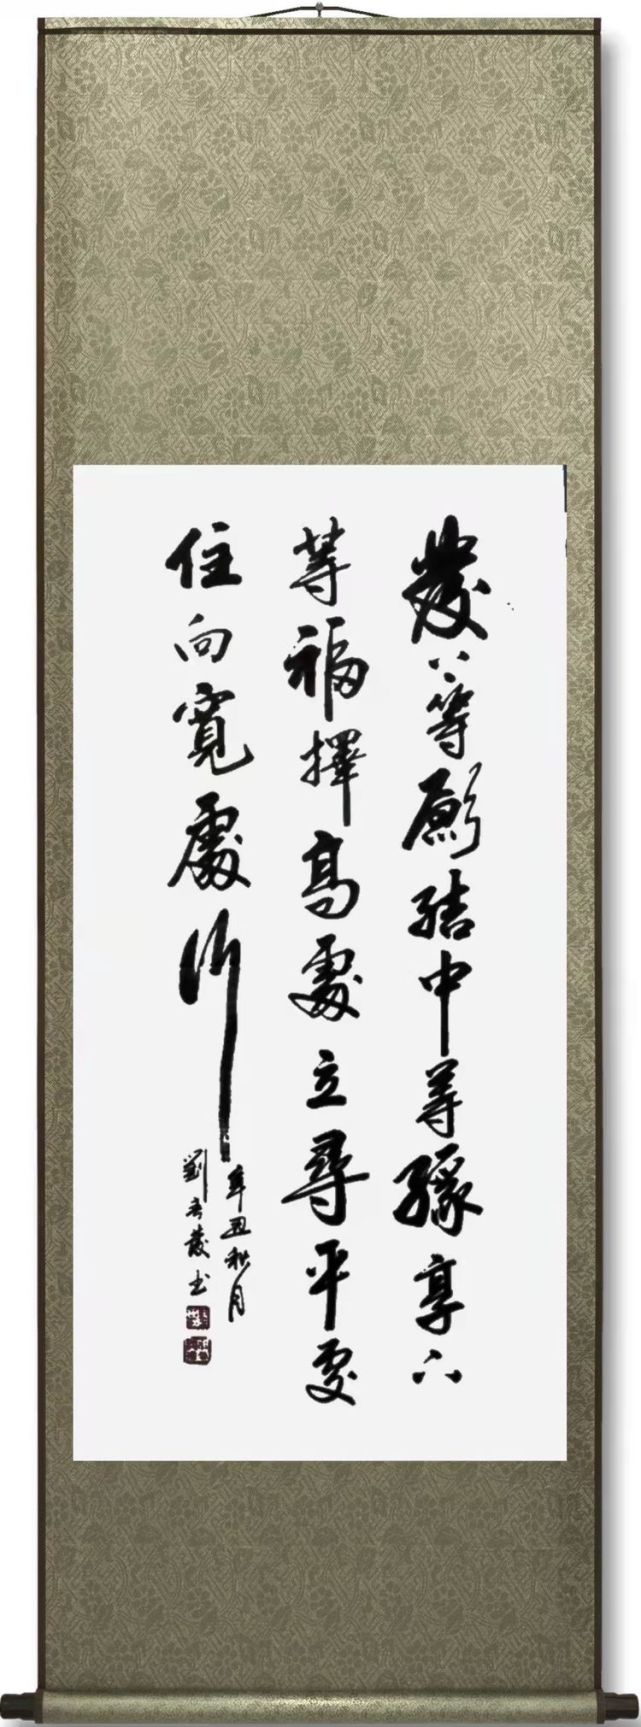 發上等願結中等緣享下
等福擇高處立尋平處
住向寬處行
辛丑秋月
劉 發书